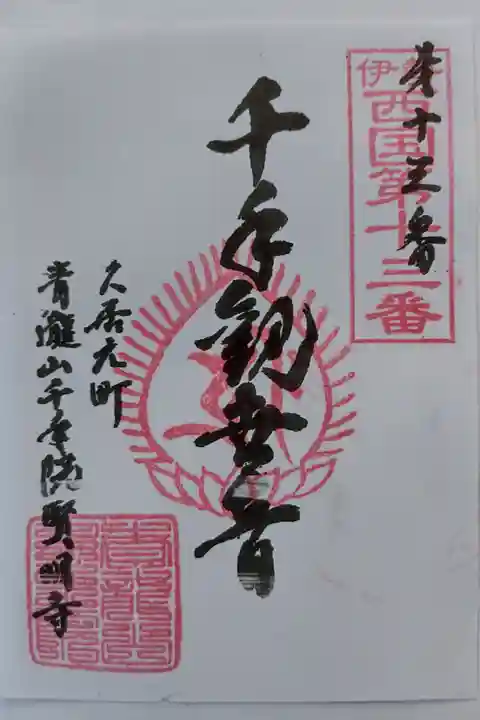 伊勢
西国第十三番
第十三番
千手観世音
久居元町
青瀧山千手院賢明寺